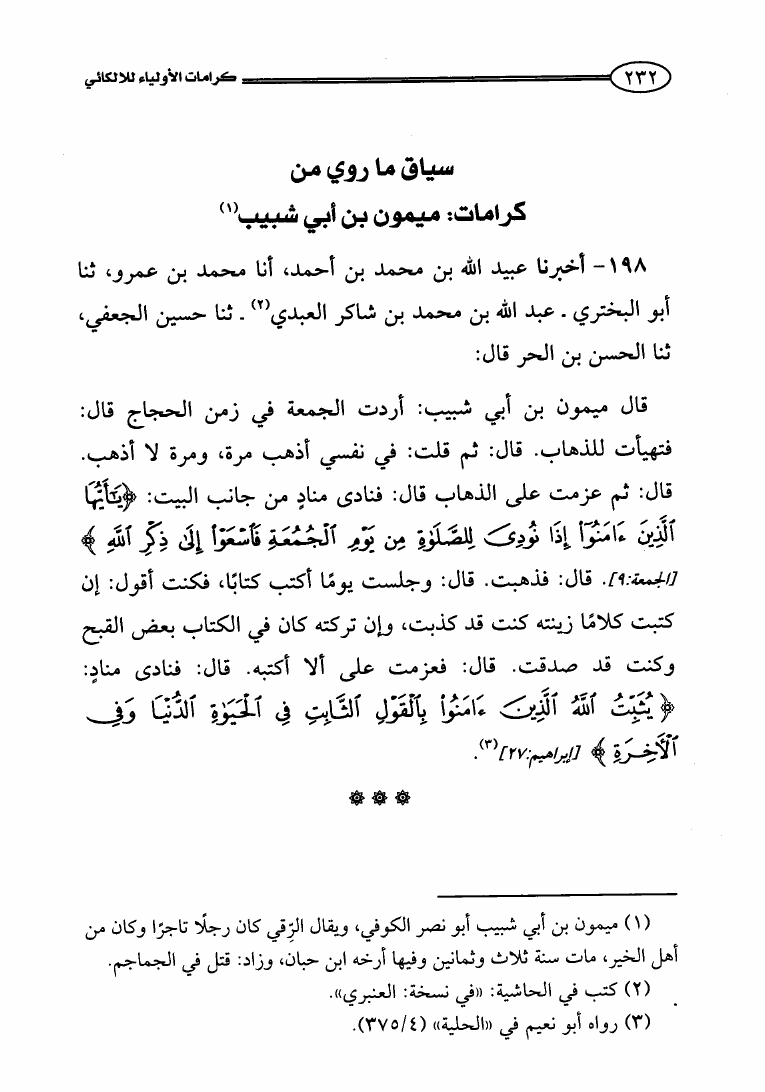 ٢٣٢ كرامات الأولياء للالكائي
سياق ما روي من
كرامات: ميمون بن أبي شبيب(١)
١٩٨- أخبرنا عبيد الله بن محمد بن أحمد، أنا محمد بن عمرو، ثنا
أبو البختري ـ عبد الله بن محمد بن شاكر العبدي(٢) ـ ثنا حسين الجعفي،
ثنا الحسن بن الحر قال:
قال ميمون بن أبي شبيب: أردت الجمعة في زمن الحجاج قال:
فتهيأت للذهاب. قال: ثم قلت: في نفسي أذهب مرة، ومرة لا أذهب.
قال: ثم عزمت على الذهاب قال: فنادى منادٍ من جانب البيت: ﴿يَٰٓأَيُّهَا
ٱلَّذِينَ ءَامَنُوٓا۟ إِذَا نُودِىَ لِلصَّلَوٰةِ مِن يَوْمِ ٱلْجُمُعَةِ فَٱسْعَوْا۟ إِلَىٰ ذِكْرِ ٱللَّهِ﴾
[الجمعة:٩]. قال: فذهبت. قال: وجلست يومًا أكتب كتابًا، فكنت أقول: إن
كتبت كلامًا زينته كنت قد كذبت، وإن تركته كان في الكتاب بعض القبح
وكنت قد صدقت. قال: فعزمت على ألا أكتبه. قال: فنادى منادٍ:
﴿يُثَبِّتُ ٱللَّهُ ٱلَّذِينَ ءَامَنُوا۟ بِٱلْقَوْلِ ٱلثَّابِتِ فِى ٱلْحَيَوٰةِ ٱلدُّنْيَا وَفِى
ٱلْأَخِرَةِ﴾ [إبراهيم:٢٧](٣).
(١) ميمون بن أبي شبيب أبو نصر الكوفي، ويقال الرِّقي كان رجلًا تاجرًا وكان من
أهل الخير، مات سنة ثلاث وثمانين وفيها أرخه ابن حبان، وزاد: قتل في الجماجم.
(٢) كتب في الحاشية: «في نسخة: العنبري».
(٣) رواه أبو نعيم في «الحلية» (٤/٣٧٥).